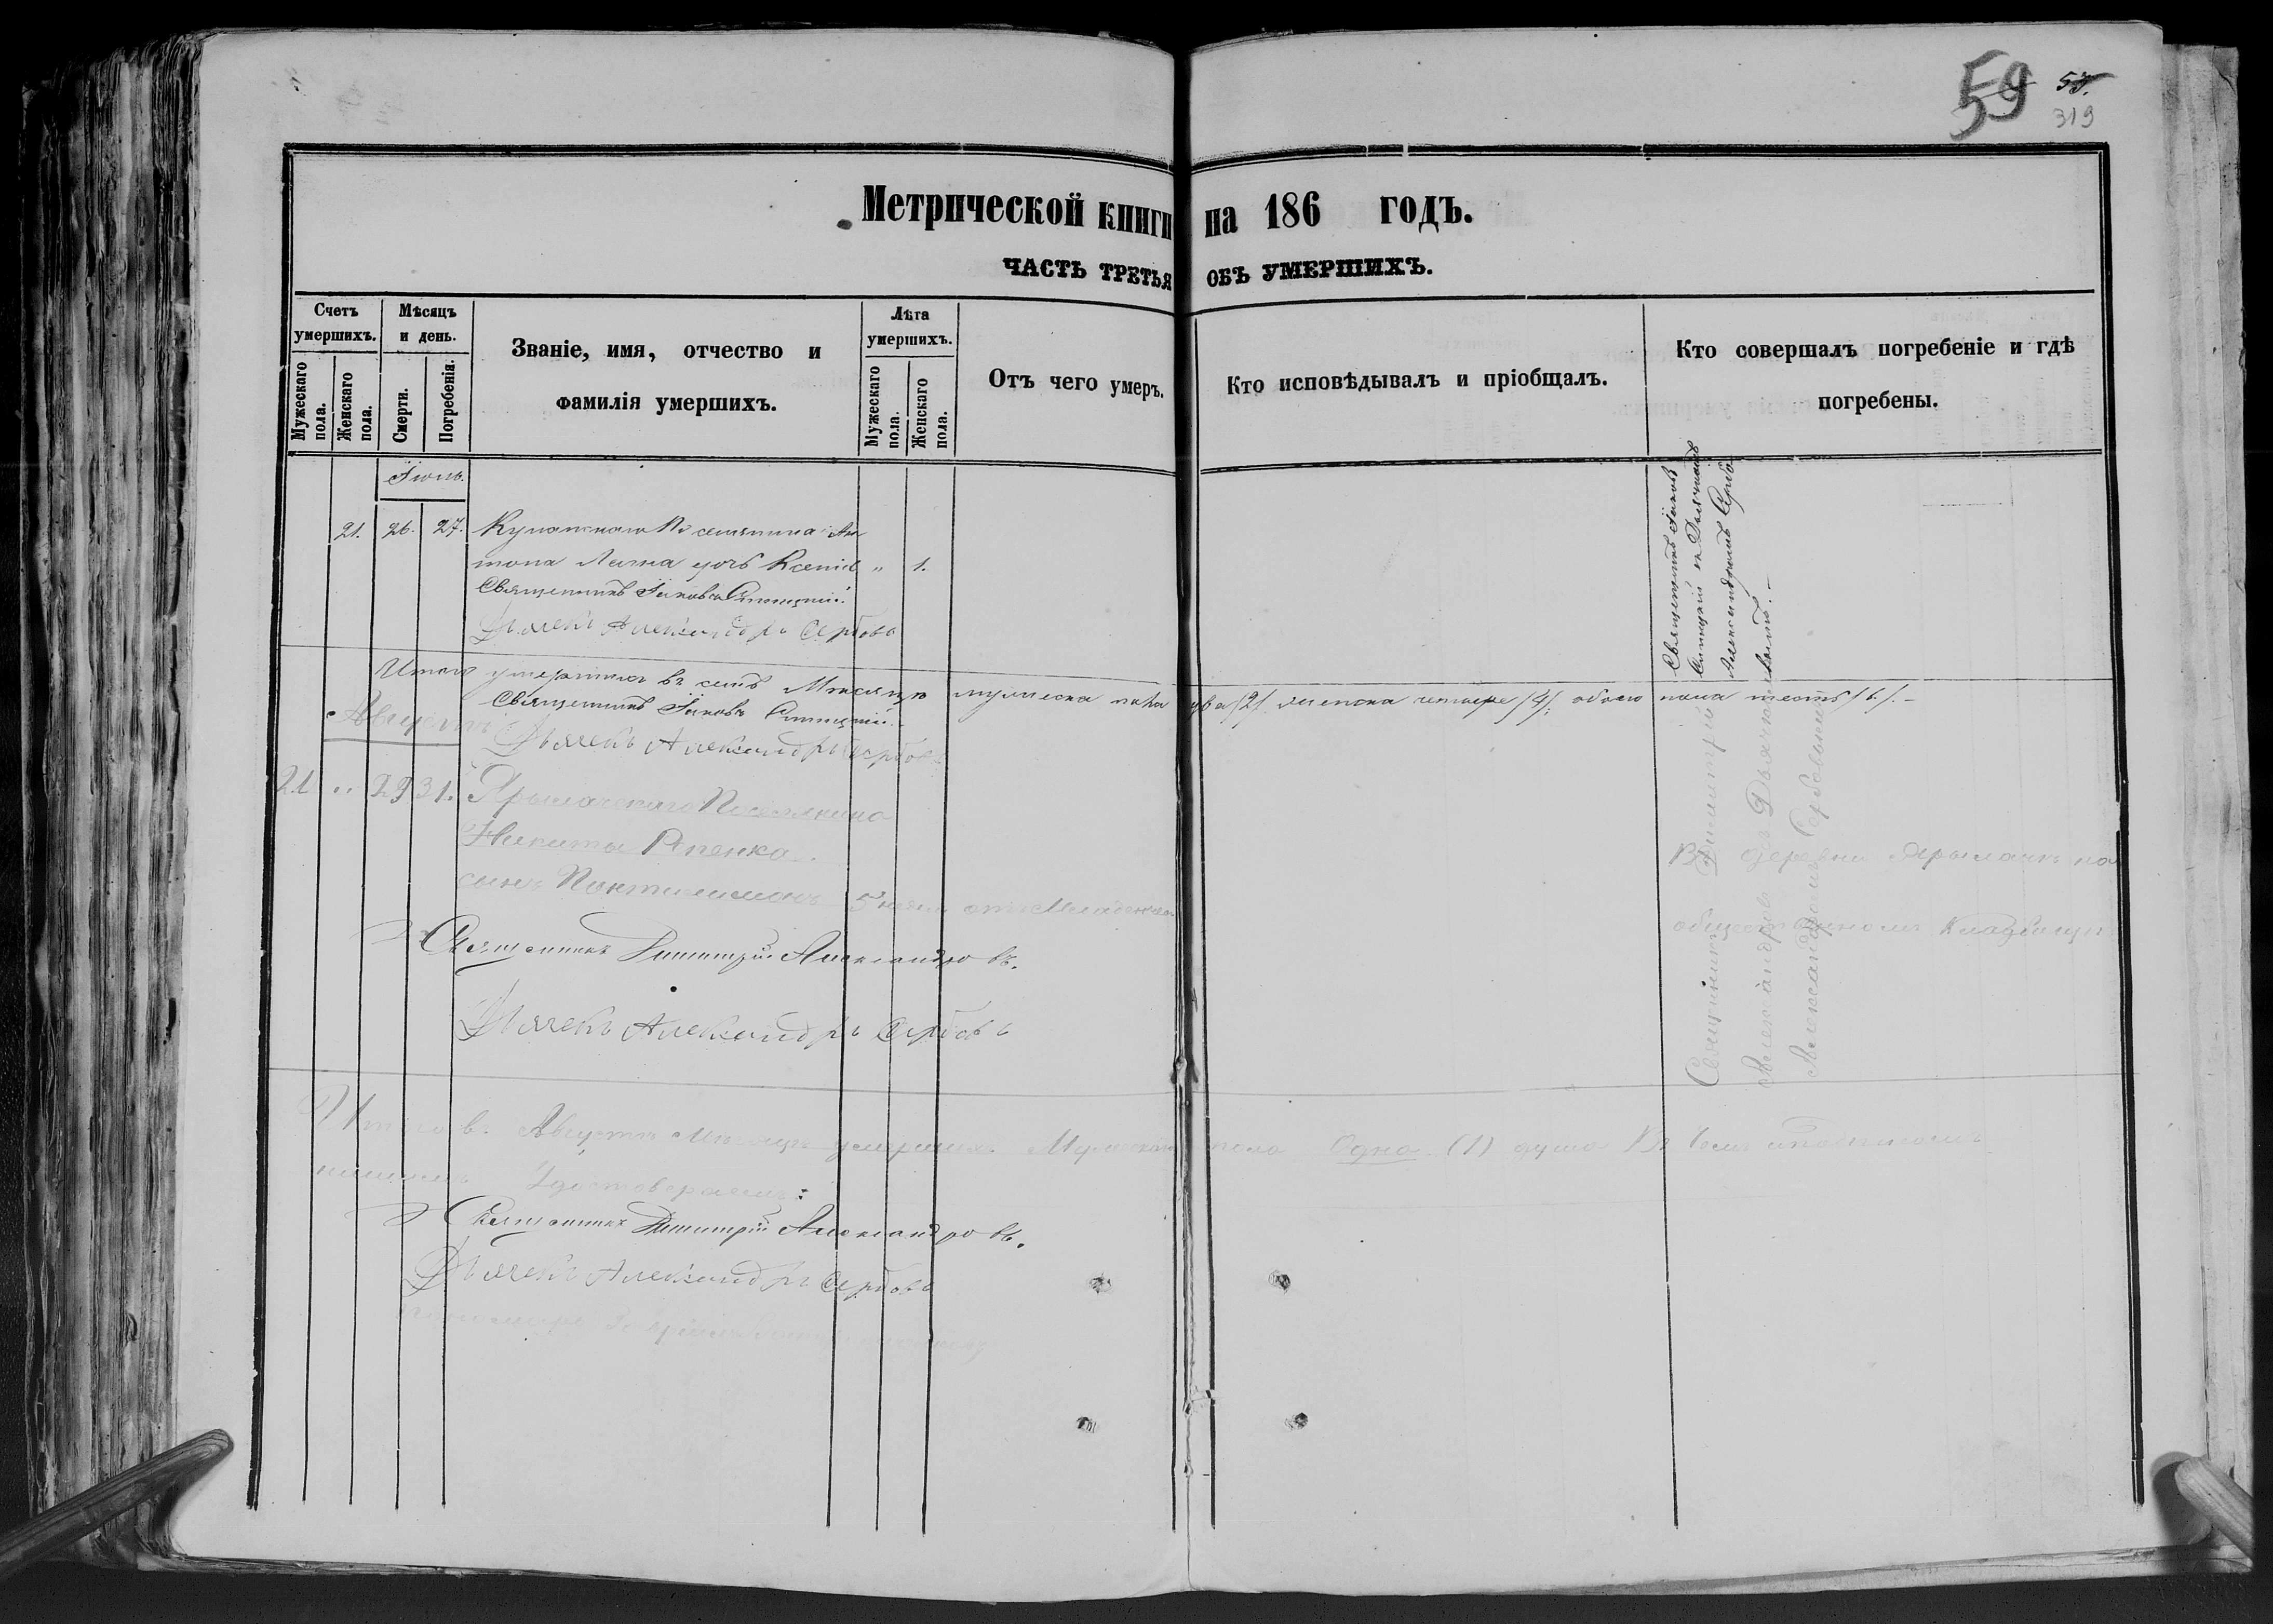 59 57.
319
Метрической книги на 186 годъ.
ЧАСТЬ ТРЕТЬЯ ОБЪ УМЕРШИХЪ.
Счетъ умершихъ.
Мужескаго пола.
Женскаго пола.
Мѣсяцъ и день.
Смерти.
Погребенія.
Званіе, имя, отчество и
фамилія умершихъ.
Лѣта умершихъ.
Мужескаго пола.
Женскаго пола.
Отъ чего умеръ.
Кто исповѣдывалъ и пріобщалъ.
Кто совершалъ погребеніе и гдѣ
погребены.
Іюль.
21. 26. 27. поселянина Ан
тона дочь Ксенія " 1.
Священникъ Іаковъ
Дьячекъ Александръ Сербовъ
Священникъ Іаковъ
съ Дьячкомъ
Александромъ Сербо
вымъ.-
Итого умершихъ въ семъ Мѣсяцѣ мужеска пола два /2/ женска четыре /4/, обоего пола шесть /6/.-
Священникъ Іаковъ
Августъ
Дьячекъ Александръ Сербовъ
21 " 29 31. Поселянина
Никиты Репенка
сынъ Пантилимонъ 5 отъ
Священникъ Димитрій Александровъ.
Дьячекъ Александръ Сербовъ
Священникъ Димитрій
Александровъ съ Дьячкомъ
Александромъ Сербовымъ
Въ деревни на
общественномъ Кладбищи
Итого въ Августѣ Мѣсяцѣ умершихъ Мужескаго пола Одна (1) душа Въ чемъ
Удостоверяемъ:
Священникъ Димитрій Александровъ.
Дьячекъ Александръ Сербовъ